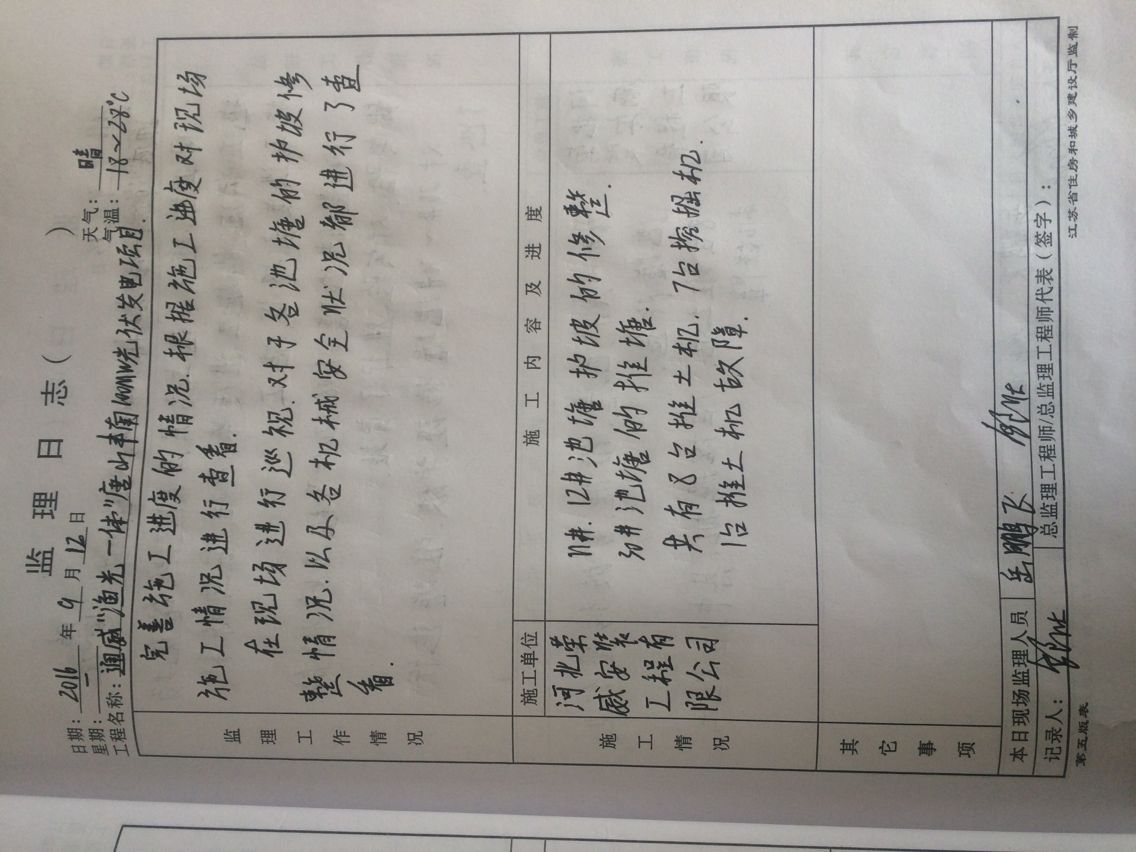 监理日志（ ）
日期：2016年9月12日 天气：晴
星期：一 气温：18～28℃
工程名称：通威"渔光一体"唐山丰南100MW光伏发电项目.
监理工作情况
完善施工进度的情况.根据施工进度对现场
施工情况进行查看.
在现场进行巡视.对于各池塘的护坡修
整情况.以及各机械安全状况都进行了查
看.
施工情况
施工单位 施工内容及进度
河北荣
威安装
工程有
限公司
11#.12#池塘护坡的修整.
池塘的推塘.
共有8台推土机.7台挖掘机.
1台推土机故障.
其它事项
本日现场监理人员 岳鹏飞
记录人： 总监理工程师/总监理工程师代表（签字）：
第五版表 江苏省住房和城乡建设厅监制